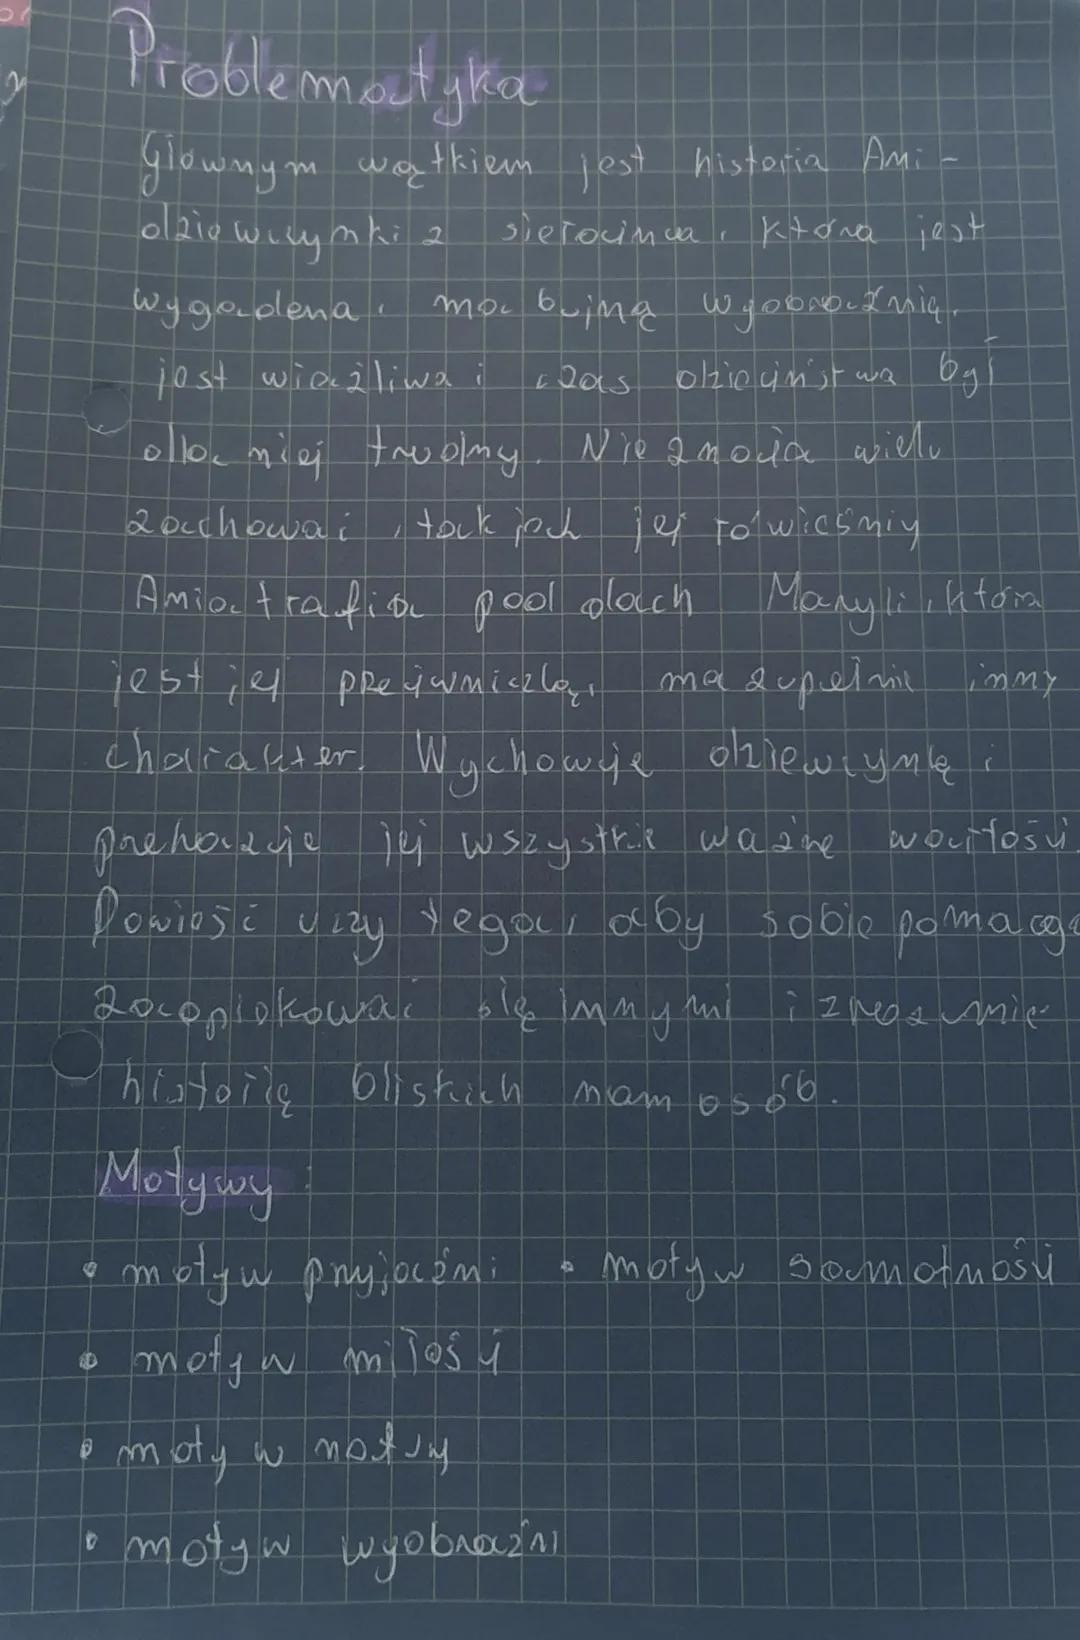 Problematyka
Głównym wątkiem jest historia Ani -
dziewczynki z sierocińca, która jest
wygadena, ma bujną wyobraźnię,
jest wrażliwa i czas dzieciństwa był
dla niej trudny. Nie znała wielu
zachowań, tak jak jej rówieśnicy
Ania trafia pod dach Maryli, która
jest jej przeciwniczką, ma zupełnie inny
charakter. Wychowuje dziewczynkę i
przekazuje jej wszystkie ważne wartości.
Powieść uczy tego, aby sobie pomagać
zaopiekować się innymi i
historię bliskich nam osób.
Motywy:
• motyw przyjaźni • motyw samotności
• motyw miłości
• motyw natury
• motyw wyobraźni